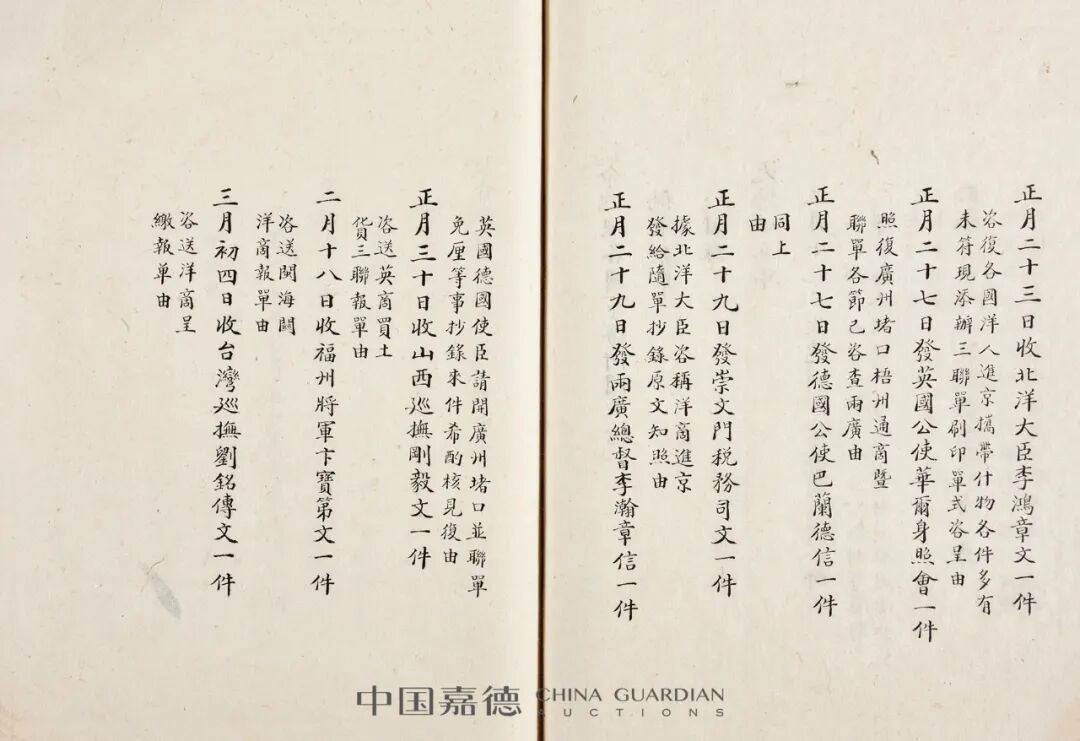 正月二十三日收北洋大臣李鴻章文一件
咨復各國洋人進京攜帶什物各件多有
未符現添辦三聯單刷印單式咨呈由
正月二十七日發英國公使華爾身照會一件
照復廣州堵口梧州通商暨
聯單各節已咨查兩廣由
正月二十七日發德國公使巴蘭德信一件
同上
由
正月二十九日發崇文門税務司文一件
據北洋大臣咨稱洋商進京
發給隨單抄錄原文知照由
正月二十九日發兩廣總督李瀚章信一件
英國德國使臣請開廣州堵口並聯單
免厘等事抄錄來件希酌核見復由
正月三十日收山西巡撫剛毅文一件
咨送英商買土
貨三聯報單由
二月十八日收福州將軍卞寶第文一件
咨送閩海關
洋商報單由
三月初四日收台灣巡撫劉銘傳文一件
咨送洋商呈
繳報单由
中国嘉德 CHINA GUARDIAN
AUCTIONS